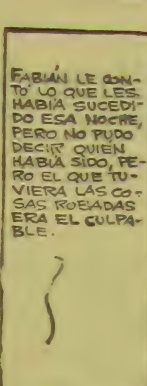 FABIÁN LE CON-
TÓ LO QUE LES
HABÍA SUCEDI-
DO ESA NOCHE,
PERO NO PUDO
DECIR QUIÉN
HABÍA SIDO, PE-
RO EL QUE TU-
VIERA LAS CO-
SAS ROBADAS
ERA EL CULPA-
BLE.